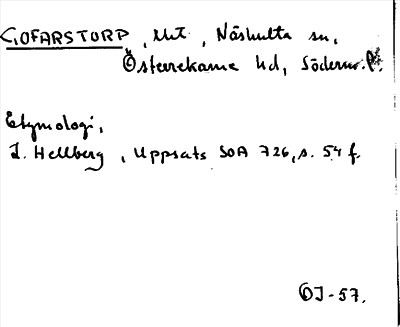 GOFARSTORP, Mt, Näshulta sn,
Österrekarne hd, Söderm.
Etymologi,
L. Hellberg, Uppsats SOA 726, s. 54 f.
OJ-57.